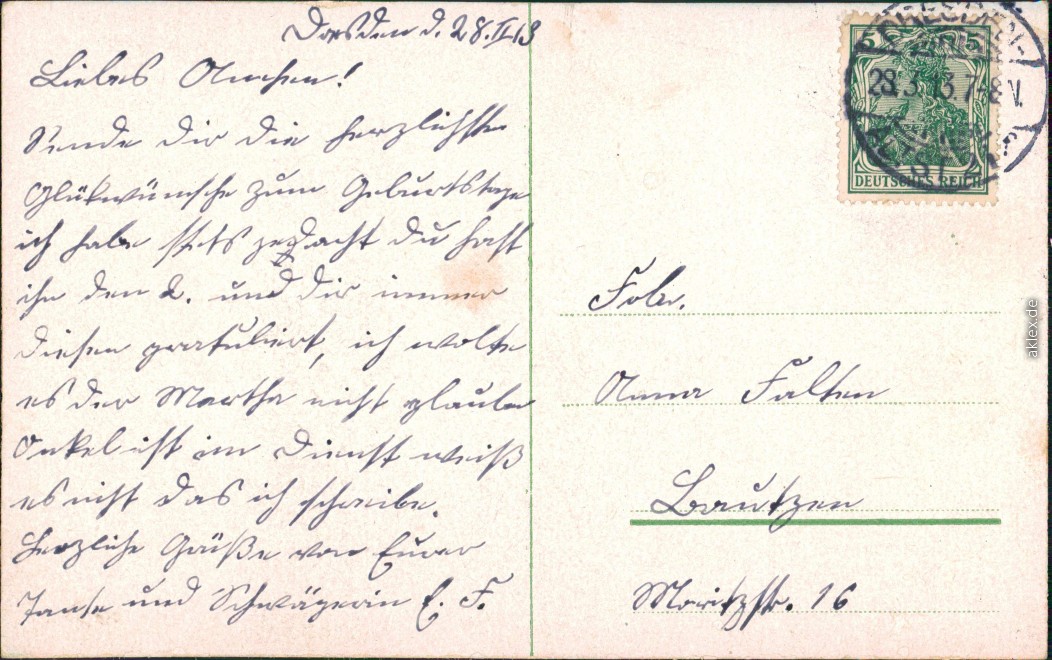 Dresden d. 28. II 13
Liebes Annchen!
Sende dir die herzlichsten
Glükwünsche zum Geburtstage
ich habe stets gedacht du hast
ihn den 2. und dir immer
diesen gratuliert, ich wolte
es der Martha nicht glauben
Onkel ist im Dienst weiß
es nicht das ich schreibe.
Herzliche Grüße von Eurer
Tante und Schwägerin E. F.
DRESDEN-
28.3.13.7-8V.
5 5
DEUTSCHES REICH
Anna Falten
Bautzen
Moritzstr. 16
aklex.de